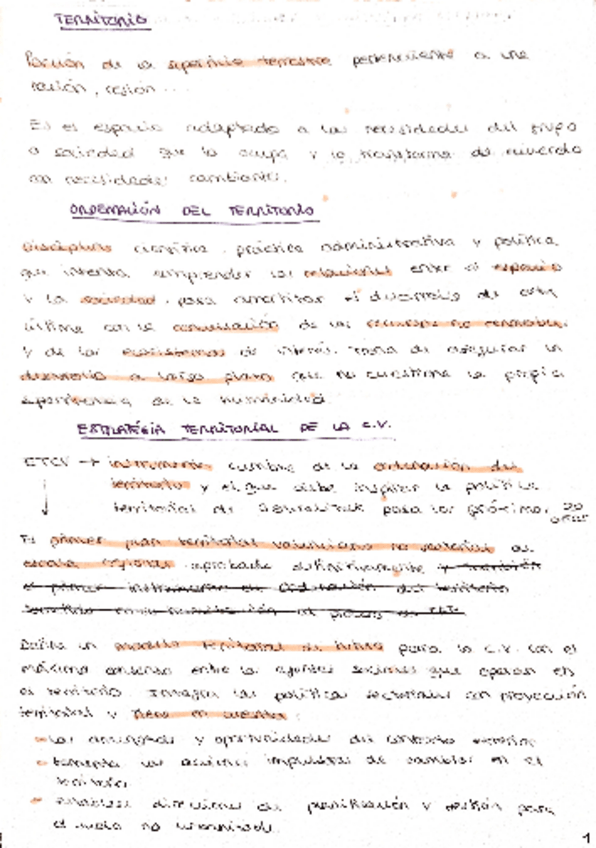 TERRITORIO
Porción de la superficie terrestre perteneciente a una
nación, región...
Es el espacio adaptado a las necesidades del grupo
o sociedad que lo ocupa y lo transforma de acuerdo
con necesidades cambiantes.
ORDENACIÓN DEL TERRITORIO
Disciplina científica, práctica administrativa y política
que intenta comprender las relaciones entre el espacio
y la sociedad para el desarrollo de esta
última con la conservación de los recursos no renovables
y de los ecosistemas de interés. Trata de asegurar un
desarrollo a largo plazo que no cuestione la propia
de la humanidad.
ESTRATEGIA TERRITORIAL DE LA C.V.
ETCV → instrumento cumbre de la ordenación del
territorio y el que debe inspirar la política
territorial de para los próximos 20
años
Es primer plan territorial no sectorial de
escala regional aprobado definitivamente
el primer instrumento de ordenación del territorio
Define un modelo territorial de futuro para la C.V. con el
máximo consenso entre los agentes sociales que operan en
el territorio. Integra las políticas sectoriales con proyección
territorial y tiene en cuenta:
- Las amenazas y oportunidades del contexto exterior
- fomenta las acciones impulsoras de cambios en el
territorio
- establece directrices de planificación y gestión para
el suelo no urbanizable.
1